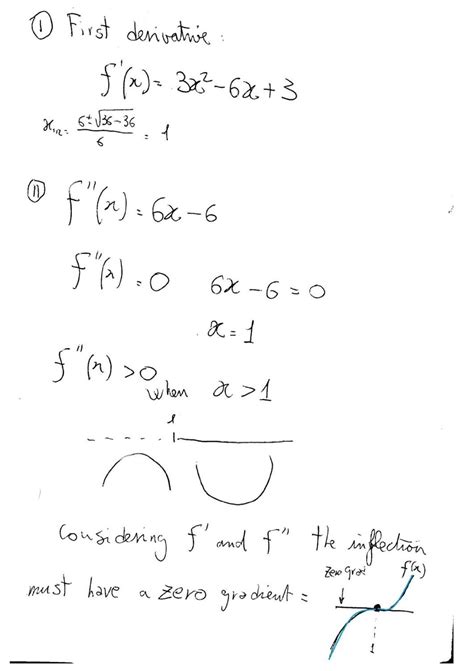 ① First derivative:
f'(x) = 3x² - 6x + 3
x₁,₂ = 6 ± √36-36 / 6 = 1
② f''(x) = 6x - 6
f''(x) = 0 6x - 6 = 0
x = 1
f''(x) > 0 when x > 1
1
Considering f' and f'' the inflection
zero grad f(x)
must have a zero gradient =
1